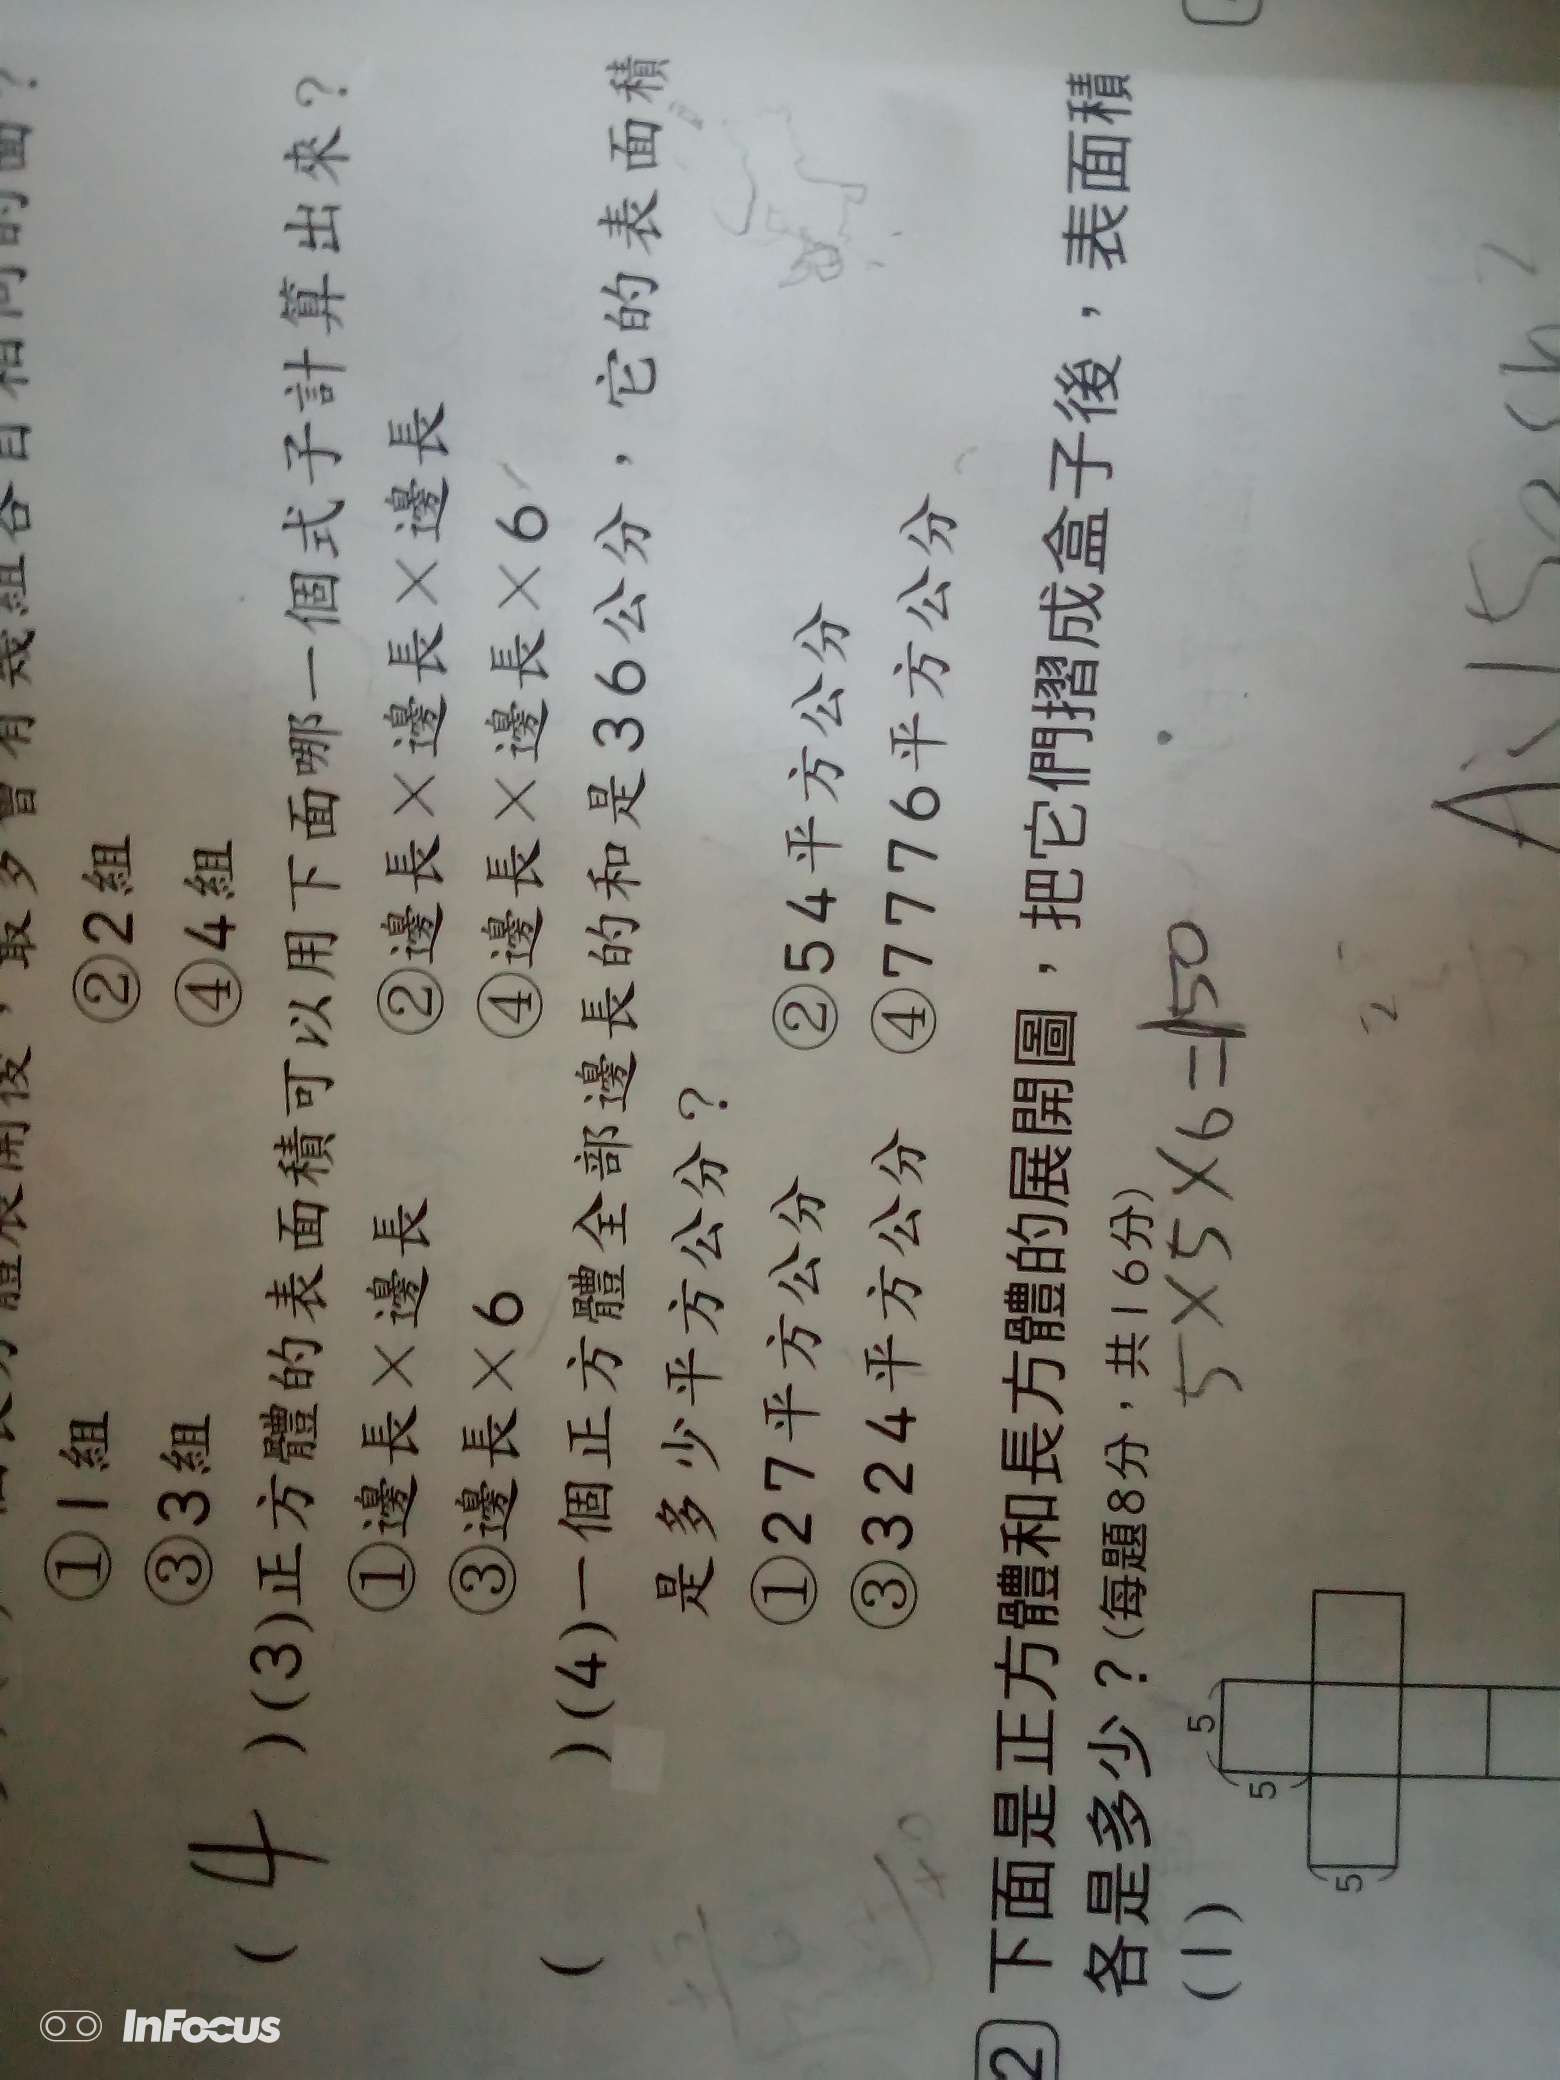 ①1組 ②2組
③3組 ④4組
( 4 )(3)正方體的表面積可以用下面哪一個式子計算出來？
①邊長×邊長 ②邊長×邊長×邊長
③邊長×6 ④邊長×邊長×6
( )(4)一個正方體全部邊長的和是36公分，它的表面積
是多少平方公分？
①27平方公分 ②54平方公分
③324平方公分 ④7776平方公分
2 下面是正方體和長方體的展開圖，把它們摺成盒子後，表面積
各是多少？(每題8分，共16分)
(1) 5×5×6=150
5
5
5
InFocus